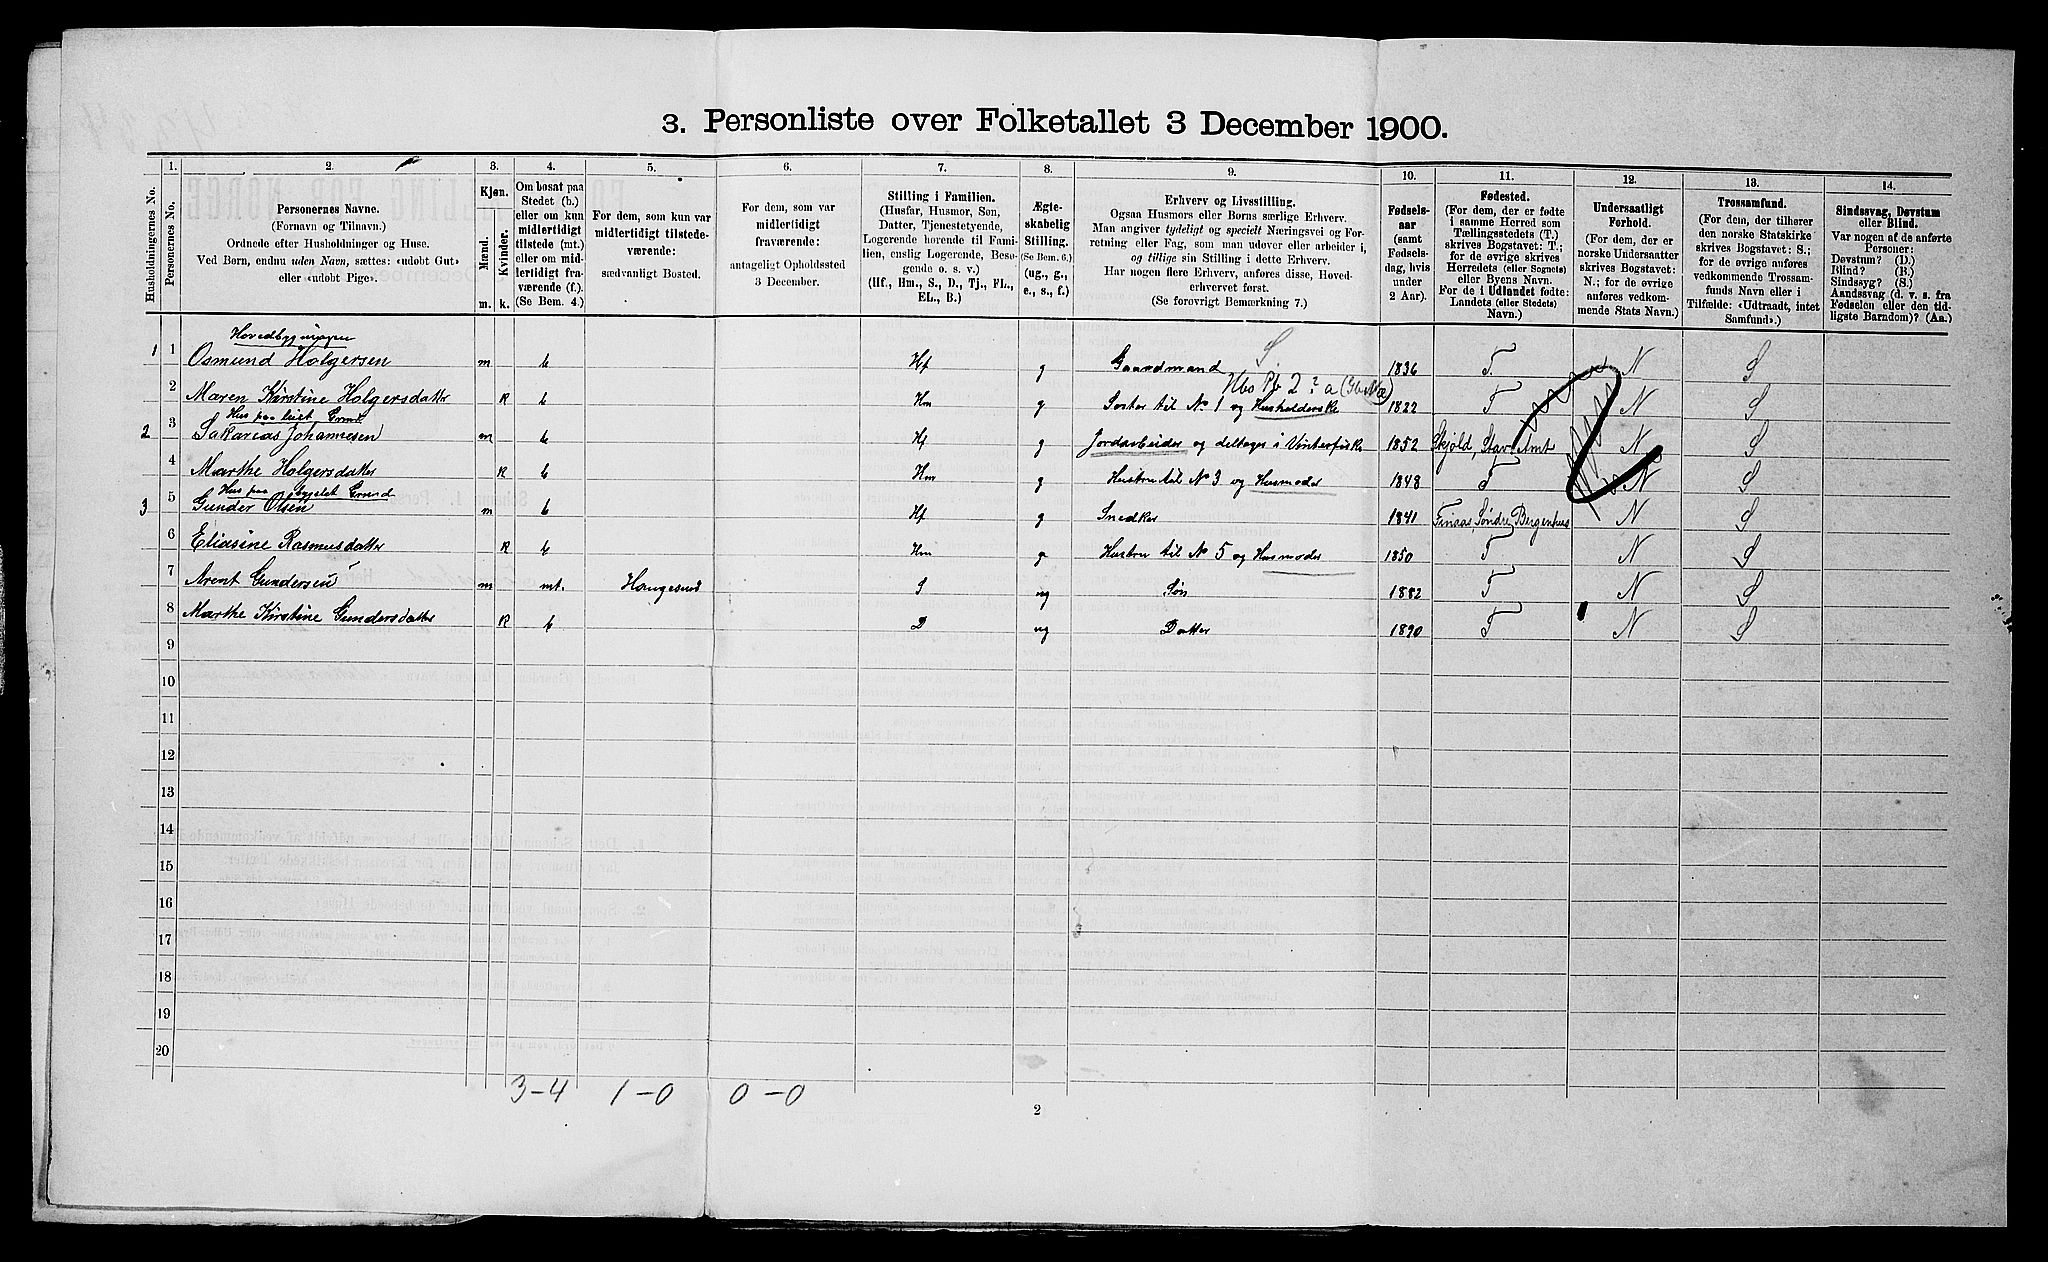 3. Personliste over Folketallet 3 December 1900.
1. 2. 3. 4. 5. 6. 7. 8. 9. 10. 11. 12. 13. 14.
Husholdningernes No.
Personernes No.
Personernes Navne.
(Fornavn og Tilnavn.)
Ordnede efter Husholdninger og Huse.
Ved Børn, endnu uden Navn, sættes: «udøbt Gut»
eller «udøbt Pige».
Kjøn.
Mænd.
Kvinder.
m. k.
Om bosat paa
Stedet (b.)
eller om kun
midlertidigt
tilstede (mt.)
eller om mid-
lertidigt fra-
værende (f.).
(Se Bem. 4.)
For dem, som kun var
midlertidigt tilstede-
værende:
sædvanligt Bosted.
For dem, som var
midlertidigt
fraværende:
antageligt Opholdssted
3 December.
Stilling i Familien.
(Husfar, Husmor, Søn,
Datter, Tjenestetyende,
Logerende hørende til Fami-
lien, enslig Logerende, Besø-
gende o. s. v.)
(Hf., Hm., S., D., Tj., FL.,
EL., B.)
Ægte-
skabelig
Stilling.
(Se Bem. 6.)
(ug., g.,
e., s., f.)
Erhverv og Livsstilling.
Ogsaa Husmors eller Børns særlige Erhverv.
Man angiver tydeligt og specielt Næringsvei og For-
retning eller Fag, som man udøver eller arbeider i,
og tillige sin Stilling i dette Erhverv.
Har nogen flere Erhverv, anføres disse, Hoved-
erhvervet først.
(Se forøvrigt Bemærkning 7.)
Fødsels-
aar
(samt
Fødsels-
dag, hvis
under
2 Aar).
Fødested.
(For dem, der er fødte
i samme Herred som
Tællingsstedets (T.)
skrives Bogstavet: T;
for de øvrige skrives
Herredets (eller Sognets)
eller Byens Navn.
For de i Udlandet fødte:
Landets (eller Stedets)
Navn.)
Undersaatligt
Forhold.
(For dem, der er
norske Undersaatter
skrives Bogstavet:
N.; for de øvrige
anføres vedkom-
mende Stats Navn.)
Trossamfund.
(For dem, der tilhører
den norske Statskirke
skrives Bogstavet: S.;
for de øvrige anføres
vedkommende Trossam-
funds Navn eller i
Tilfælde: «Udtraadt, intet
Samfund».)
Sindssvag, Døvstum
eller Blind.
Var nogen af de anførte
Personer:
Døvstum? (D.)
Blind? (B.)
Sindssyg? (S.)
Aandssvag (d. v. s. fra
Fødselen eller den tid-
ligste Barndom)? (Aa.)
Hovedbygningen
1 1 Osmund Holgersen m b Hf g Gaardmand S. 1836 T. N S
2 Maren Kirstine Holgersdatter k b Hm g Søster til No 1 og Husholderske 1822 T N S
Hus paa leiet Grund
2 3 Sakarias Johannesen m b Hf g Jordarbeider og deltager i Vinterfiske 1852 Skjold, Stav. Amt N S
4 Marthe Holgersdatter k b Hm g Hustru til No 3 og Husmoder 1848 T N S
Hus paa bygslet Grund
3 5 Gunder Olsen m b Hf g Snedker 1841 Finaas, Søndre Bergenhus N S
6 Eliasine Rasmusdatter k b Hm g Hustru til No 5 og Husmoder 1850 T N S
7 Arent Gundersen m mt. Haugesund S ug Søn 1882 T N S
8 Marthe Kirstine Gundersdatter k b D ug Datter 1890 T N S
9
10
11
12
13
14
15
16
17
18
19
20
3-4 1-0 0-0
2